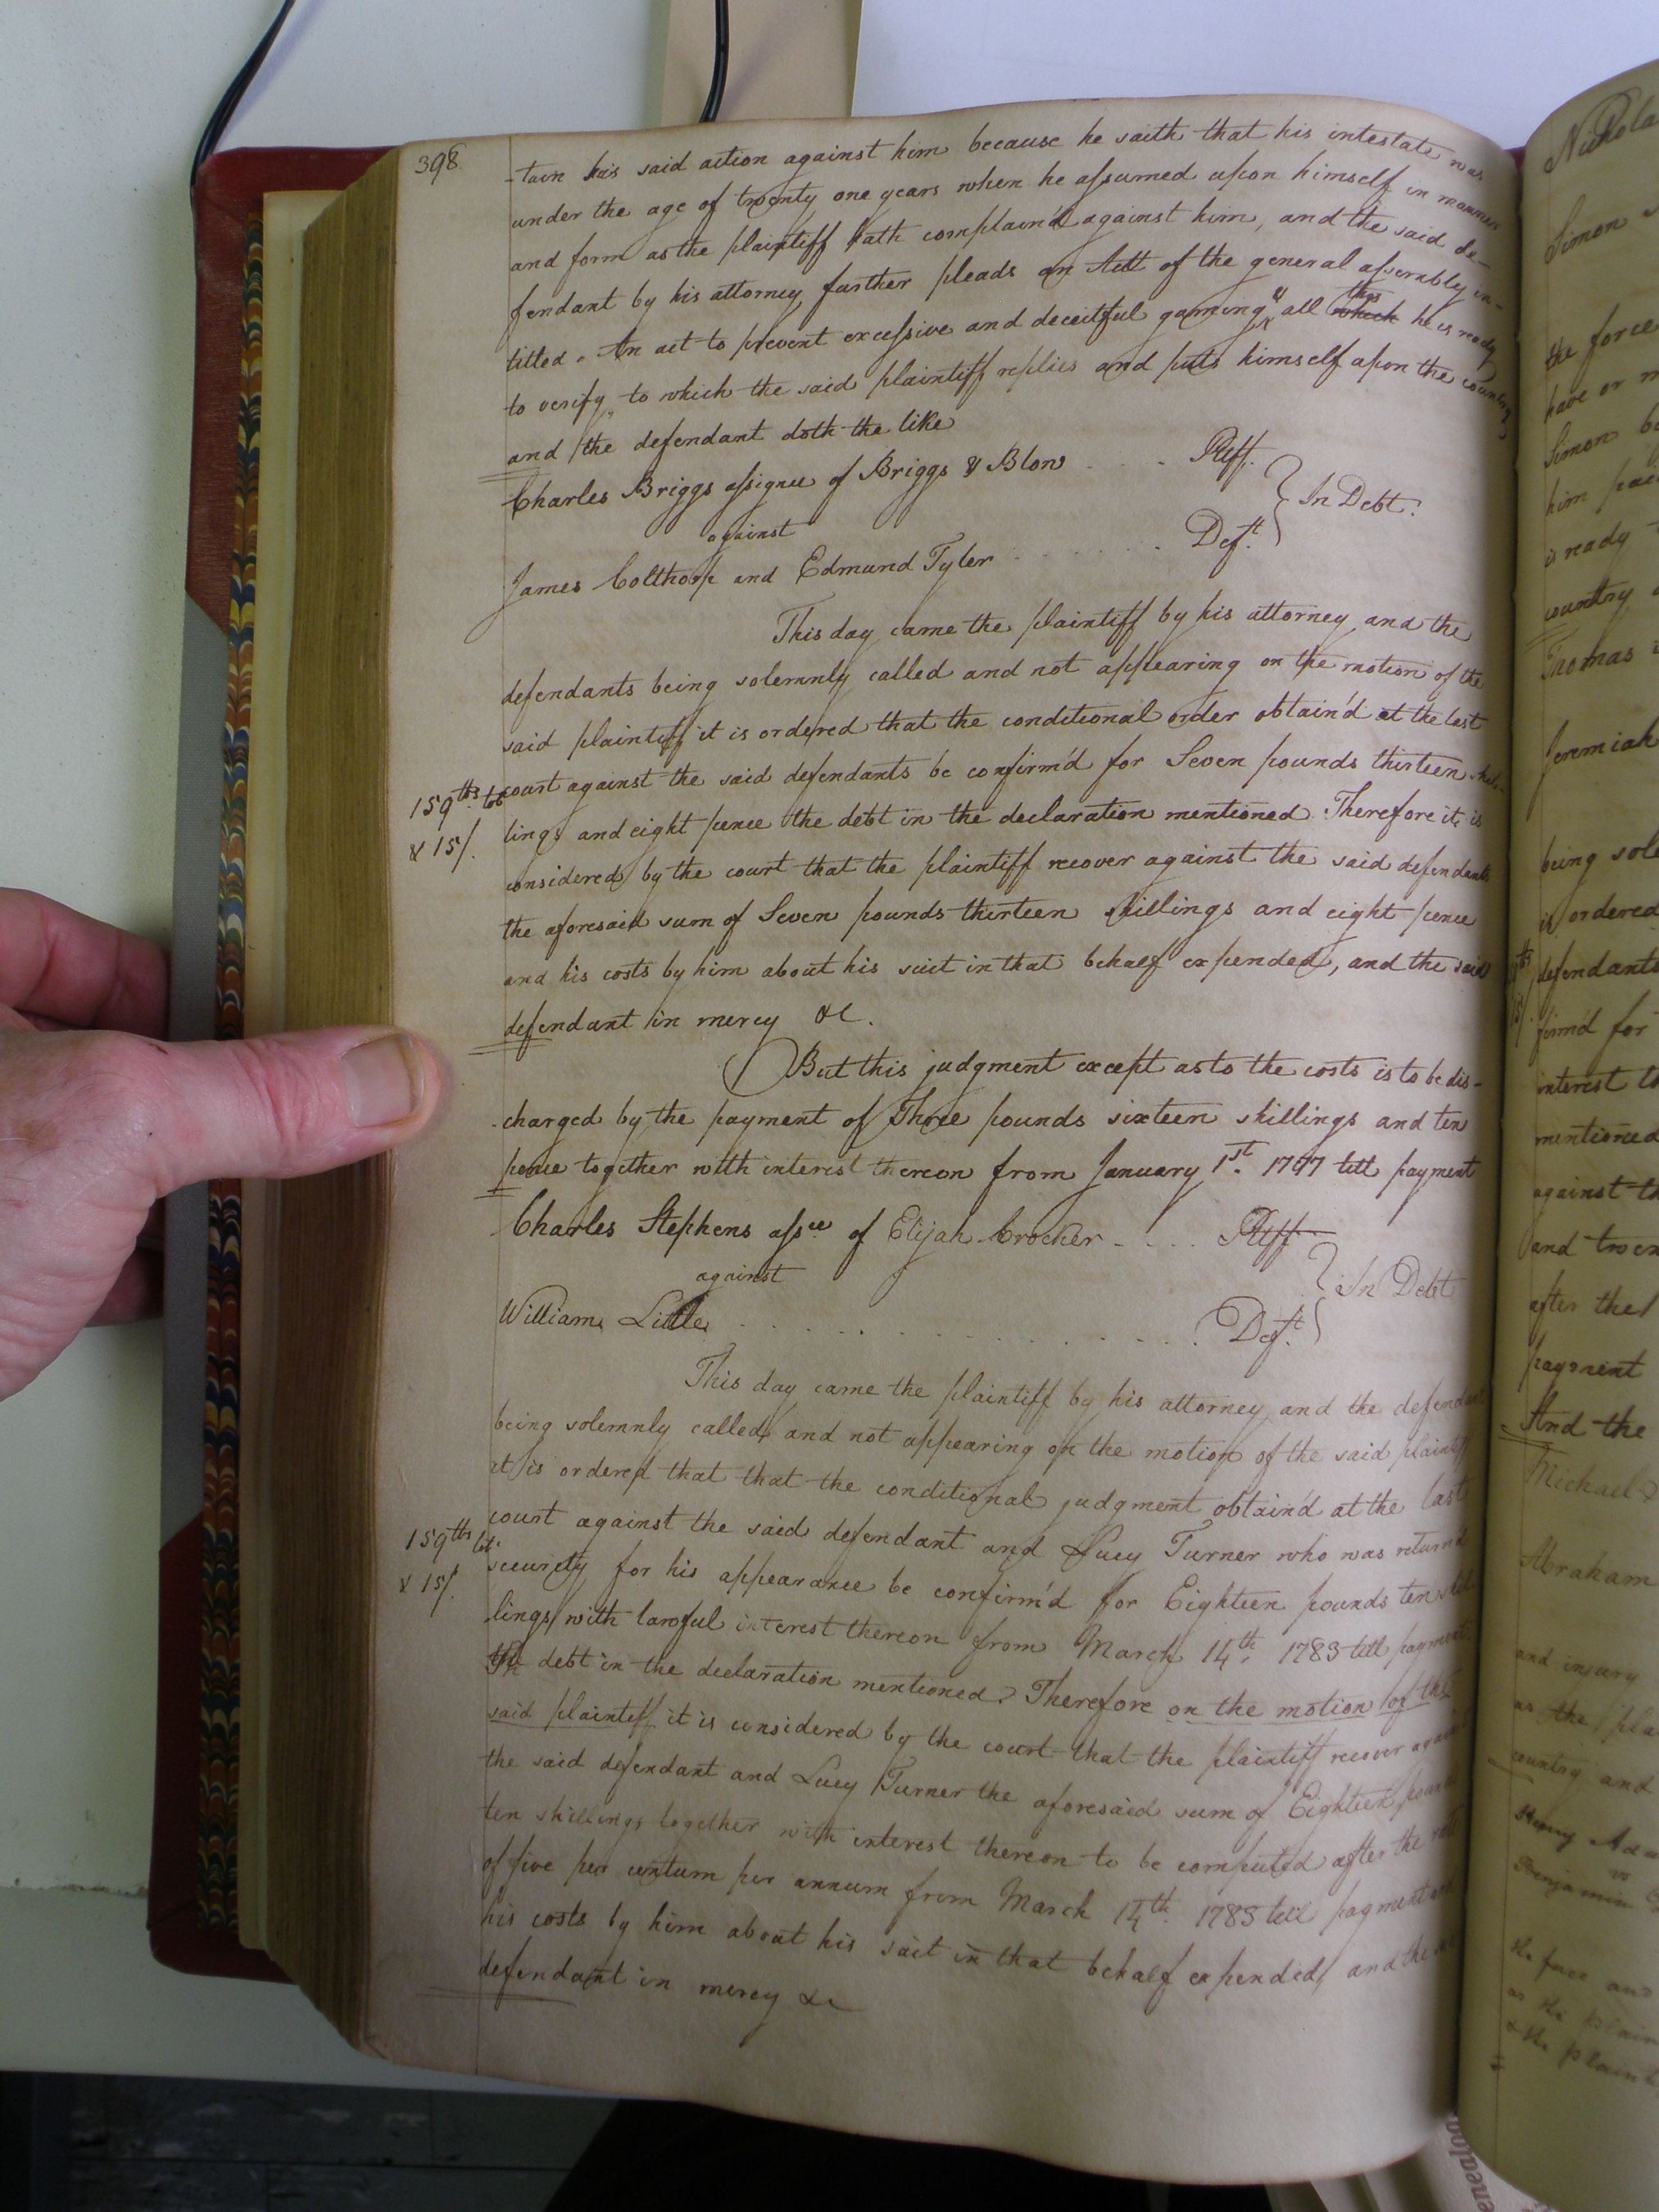 398.
-tain his said action against him because he saith that his intestate was
under the age of twenty one years when he assumed upon himself in manner
and form as the plaintiff hath complain'd against him, and the said de-
fendant by his attorney further pleads an Act of the general assembly in-
titled "An act to prevent excessive and deceitful gaming" all this which he is ready
to verify, to which the said plaintiff replies and puts himself upon the country
and the defendant doth the like
Charles Briggs assignee of Briggs & Blow .... Pltff.
against } In Debt.
James Colthorp and Edmund Tyler ....... Deft.
This day came the plaintiff by his attorney and the
defendants being solemnly called and not appearing on the motion of the
said plaintiff it is ordered that the conditional order obtain'd at the last
court against the said defendants be confirm'd for Seven pounds thirteen shil-
159 lbs tob
& 15/.
lings and eight pence the debt in the declaration mentioned. Therefore it is
considered by the court that the plaintiff recover against the said defendants
the aforesaid sum of Seven pounds thirteen shillings and eight pence
and his costs by him about his suit in that behalf expended, and the said
defendant in mercy &c.
But this judgment except as to the costs is to be dis-
-charged by the payment of Three pounds sixteen shillings and ten
pence together with interest thereon from January 1st. 1777 till payment
Charles Stephens assee of Elijah Crocker .... Pltff
against } In Debt
William Little .......... Deft.
This day came the plaintiff by his attorney and the defendant
being solemnly called, and not appearing on the motion of the said plaintiff
it is ordered that that the conditional judgment obtain'd at the last
court against the said defendant and Lucy Turner who was return'd
159 lbs tob
& 15/.
security for his appearance be confirm'd for Eighteen pounds ten shil-
lings with lawful interest thereon from March 14th. 1783 till payment.
The debt in the declaration mentioned. Therefore on the motion of the
said plaintiff it is considered by the court that the plaintiff recover against
the said defendant and Lucy Turner the aforesaid sum of Eighteen pounds
ten shillings together with interest thereon to be computed after the rate
of five per centum per annum from March 14th. 1783 till payment and
his costs by him about his suit in that behalf expended, and the said
defendant in mercy &c
Simon
the force
have or
Simon
him
is ready
country
Thomas
Jeremiah
being
is ordered
defendants
firm'd for
interest to
mentioned
against
and
after the
payment
And the
Michael
Abraham
and injury
as the
country and
Benjamin